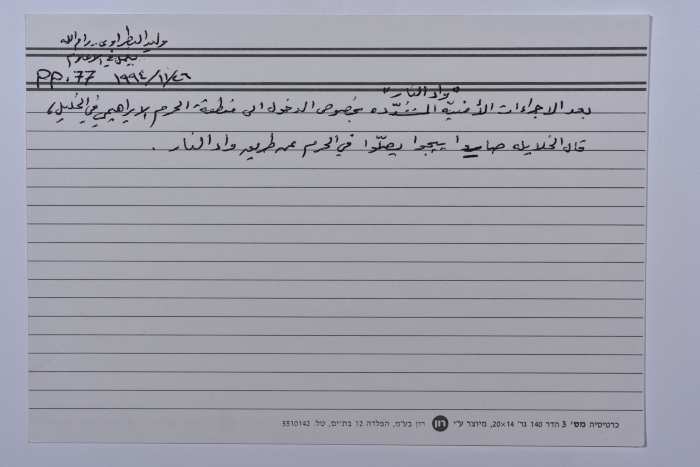 وليد البطراوي - رام الله
يعمل في الاعلام
pp.77 ١٩٩٤/١١/٢٦
"واد النار"
بعد الاجراءات الأمنيّة المشدّده بخصوص الدخول الى منطقة الحرم الابراهيمي في الخليل،
قال الخلايله صاروا ييجوا يصلّوا في الحرم عن طريق واد النار.
כרטיסיה מס׳ 3 הדר 140 גר׳ 14×20, מיוצר ע״י רון רון בע״מ, הפלדה 12 בת־ים, טל. 5510142